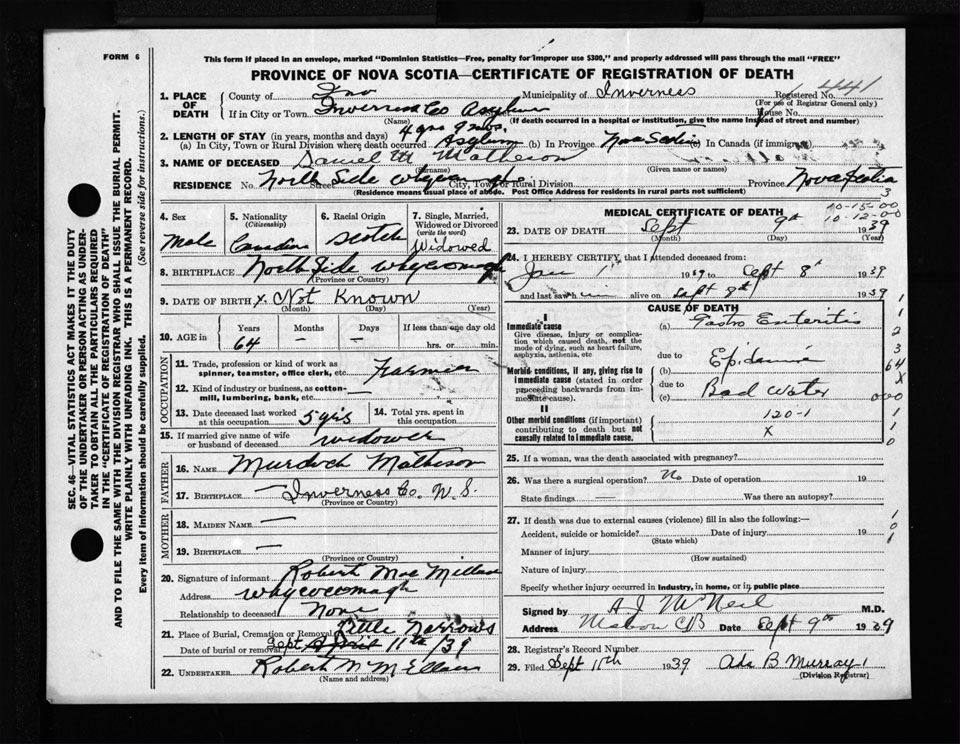 FORM 6
This form if placed in an envelope, marked "Dominion Statistics—Free, penalty for improper use $300," and properly addressed will pass through the mail "FREE"
PROVINCE OF NOVA SCOTIA—CERTIFICATE OF REGISTRATION OF DEATH
441
1. PLACE OF DEATH
County of Inv Municipality of Inverness Registered No.
(For use of Registrar General only)
If in City or Town Inverness Co Asylum House No.
(Name) (If death occurred in a hospital or institution, give the name instead of street and number)
2. LENGTH OF STAY (in years, months and days) 4 yrs 9 mos.
(a) In City, Town or Rural Division where death occurred Asylum (b) In Province Nova Scotia (c) In Canada (if immigrant)
3. NAME OF DECEASED Daniel M Matheson
(Surname) (Given name or names)
RESIDENCE No. North Side Whycocomagh Street City, Town or Rural Division Province Nova Scotia
(Residence means usual place of abode. Post Office Address for residents in rural parts not sufficient)
3
SEC. 46—VITAL STATISTICS ACT MAKES IT THE DUTY
OF THE UNDERTAKER OR PERSON ACTING AS UNDER-
TAKER TO OBTAIN ALL THE PARTICULARS REQUIRED
IN THE "CERTIFICATE OF REGISTRATION OF DEATH"
AND TO FILE THE SAME WITH THE DIVISION REGISTRAR WHO SHALL ISSUE THE BURIAL PERMIT.
WRITE PLAINLY WITH UNFADING INK. THIS IS A PERMANENT RECORD.
Every item of information should be carefully supplied. (See reverse side for instructions.)
4. Sex
Male
5. Nationality
(Citizenship)
Canadian
6. Racial Origin
Scotch
7. Single, Married, Widowed or Divorced
(write the word)
Widowed
8. BIRTHPLACE North Side Whycocomagh
(Province or Country)
9. DATE OF BIRTH x Not Known
(Month) (Day) (Year)
10. AGE in
Years Months Days If less than one day old
64 — — hrs. or min.
OCCUPATION
11. Trade, profession or kind of work as
spinner, teamster, office clerk, etc. Farmer
12. Kind of industry or business, as cotton-
mill, lumbering, bank, etc. —
13. Date deceased last worked
at this occupation 5 yrs
14. Total yrs. spent in
this occupation
15. If married give name of wife
or husband of deceased widower
FATHER
16. NAME Murdoch Matheson
17. BIRTHPLACE — Inverness Co. N.S.
(Province or Country)
MOTHER
18. MAIDEN NAME —
19. BIRTHPLACE —
(Province or Country)
20. Signature of informant Robert MacMillan
Address Whycocomagh
Relationship to deceased None
21. Place of Burial, Cremation or Removal Little Narrows
Date of burial or removal Sept April 11th /39
22. UNDERTAKER Robert N McMillan
(Name and address)
MEDICAL CERTIFICATE OF DEATH
10-15-00
10-12-00
23. DATE OF DEATH Sept 9th 1939
(Month) (Day) (Year)
24. I HEREBY CERTIFY that I attended deceased from:
Jan 1st 1939 to Sept 8th 1939
and last saw him alive on Sept 8th 1939
CAUSE OF DEATH
I
Immediate cause
Give disease, injury or complication which caused death, not the mode of dying, such as heart failure, asphyxia, asthenia, etc
(a) Gastro Enteritis
due to
Morbid conditions, if any, giving rise to immediate cause (stated in order proceeding backwards from immediate cause).
(b) Epidemic
due to
(c) Bad Water
II
Other morbid conditions (if important) contributing to death but not causally related to immediate cause.
120-1
X
1
1
2
3
64
X
000
1
1
0
25. If a woman, was the death associated with pregnancy?
26. Was there a surgical operation? No Date of operation 19
State findings — Was there an autopsy?
27. If death was due to external causes (violence) fill in also the following:—
Accident, suicide or homicide? Date of injury 19
(State which)
Manner of injury
(How sustained)
Nature of injury
Specify whether injury occurred in industry, in home, or in public place
1
0
1
Signed by A J McNeil M.D.
Address Mabou CB Date Sept 9th 1939
28. Registrar's Record Number
29. Filed Sept 15th 1939 Ada B Murray
(Division Registrar)